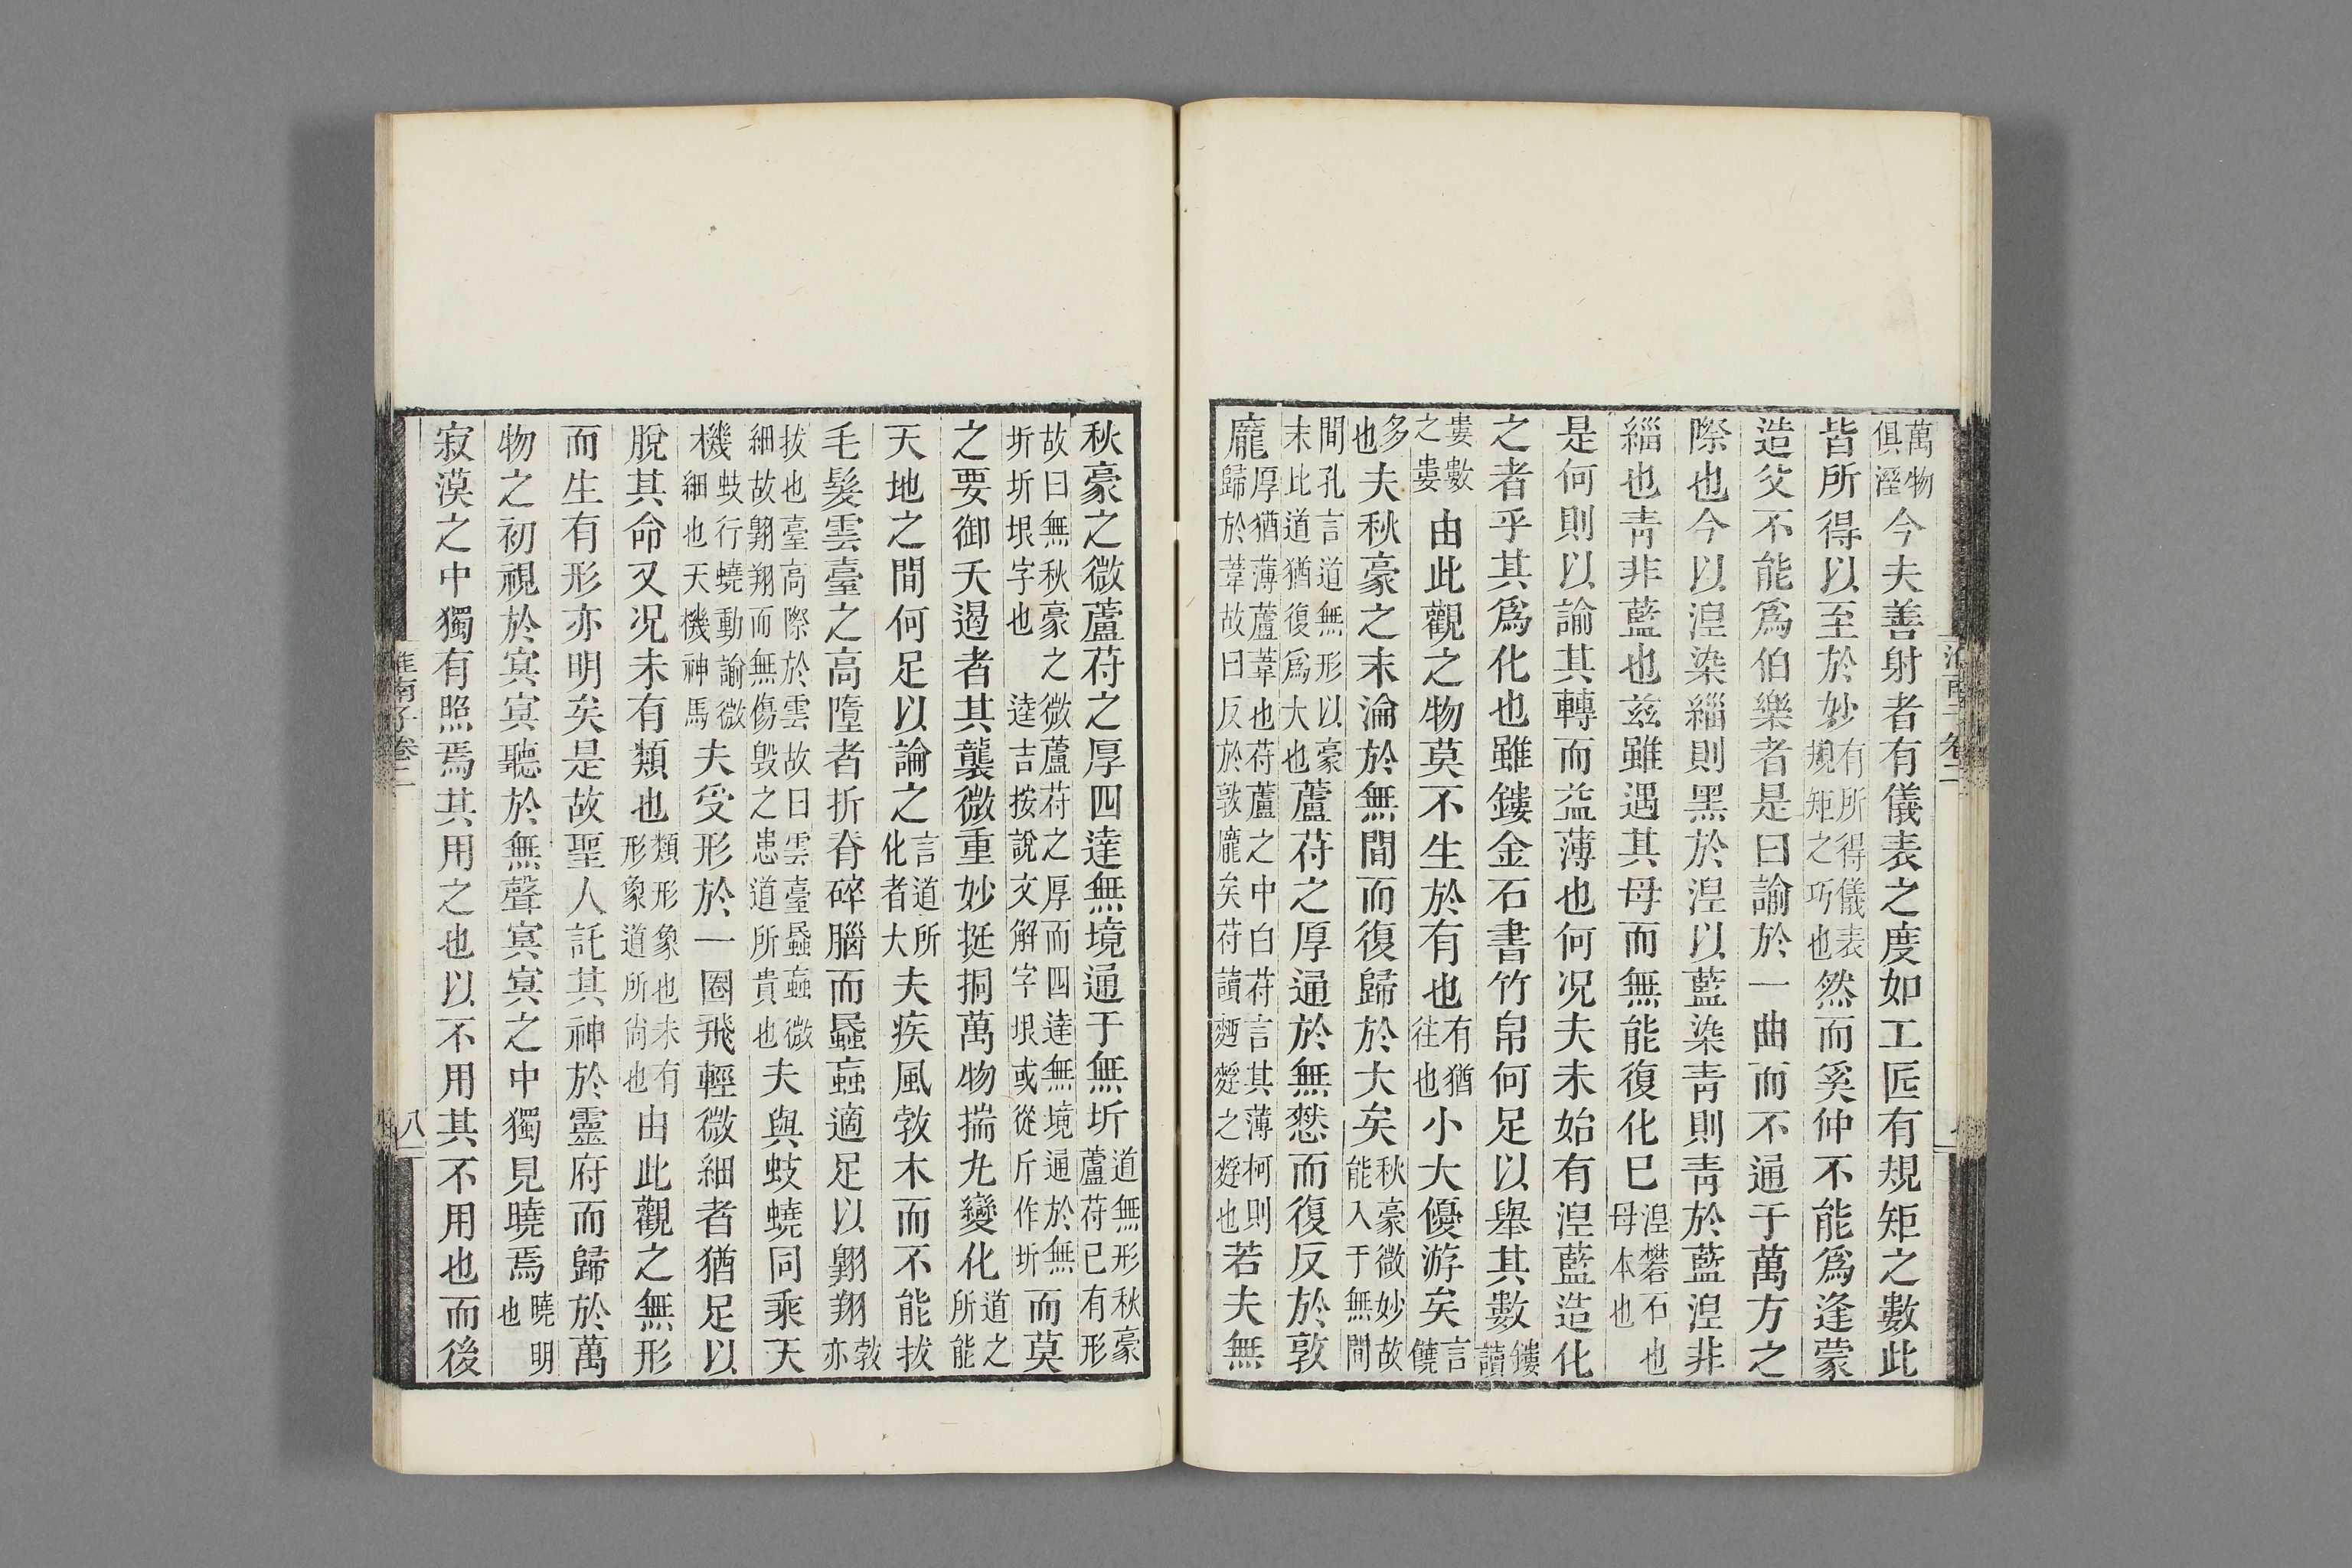 萬物俱溼今夫善射者有儀表之度如工匠有規矩之數此
皆所得以至於妙有所得儀表規矩之巧也然而奚仲不能爲逢蒙
造父不能爲伯樂者是曰諭於一曲而不通于萬方之
際也今以湼染緇則黑於湼以藍染靑則靑於藍湼非
緇也靑非藍也兹雖遇其母而無能復化已湼礬石也母本也
是何則以諭其轉而益薄也何况夫未始有湼藍造化
之者乎其爲化也雖鏤金石書竹帛何足以舉其數鏤讀
婁數之婁由此觀之物莫不生於有也有猶往也小大優游矣言饒
多也夫秋豪之末淪於無間而復歸於大矣秋豪微妙故能入于無間
間孔言道無形以豪末比道猶復爲大也蘆苻之厚通於無㙬而復反於敦
龐厚猶薄蘆葦也苻蘆之中白苻言其薄柯則歸於葦故曰反於敦龐矣苻讀麪麰之麰也若夫無
秋豪之微蘆苻之厚四達無境通于無圻道無形秋豪蘆苻已有形
故曰無秋豪之微蘆苻之厚而四達無境通於無圻圻垠字也 逵吉按說文解字垠或從斤作圻而莫
之要御夭遏者其襲微重妙挺挏萬物揣丸變化道之所能
天地之間何足以論之言道所化者大夫疾風敦木而不能拔
毛髮雲臺之高墮者折脊碎腦而蟁蝱適足以翾翔敦亦
拔也臺高際於雲故曰雲臺蟁蝱微細故翾翔而無傷毁之患道所貴也夫與蚑蟯同乘天
機蚑行蟯動諭微細也天機神馬夫受形於一圈飛輕微細者猶足以
脫其命又况未有類也類形象也未有形象道所尙也由此觀之無形
而生有形亦明矣是故聖人託其神於靈府而歸於萬
物之初視於冥冥聽於無聲冥冥之中獨見曉焉曉明也
寂漠之中獨有照焉其用之也以不用其不用也而後
淮南子卷二
八